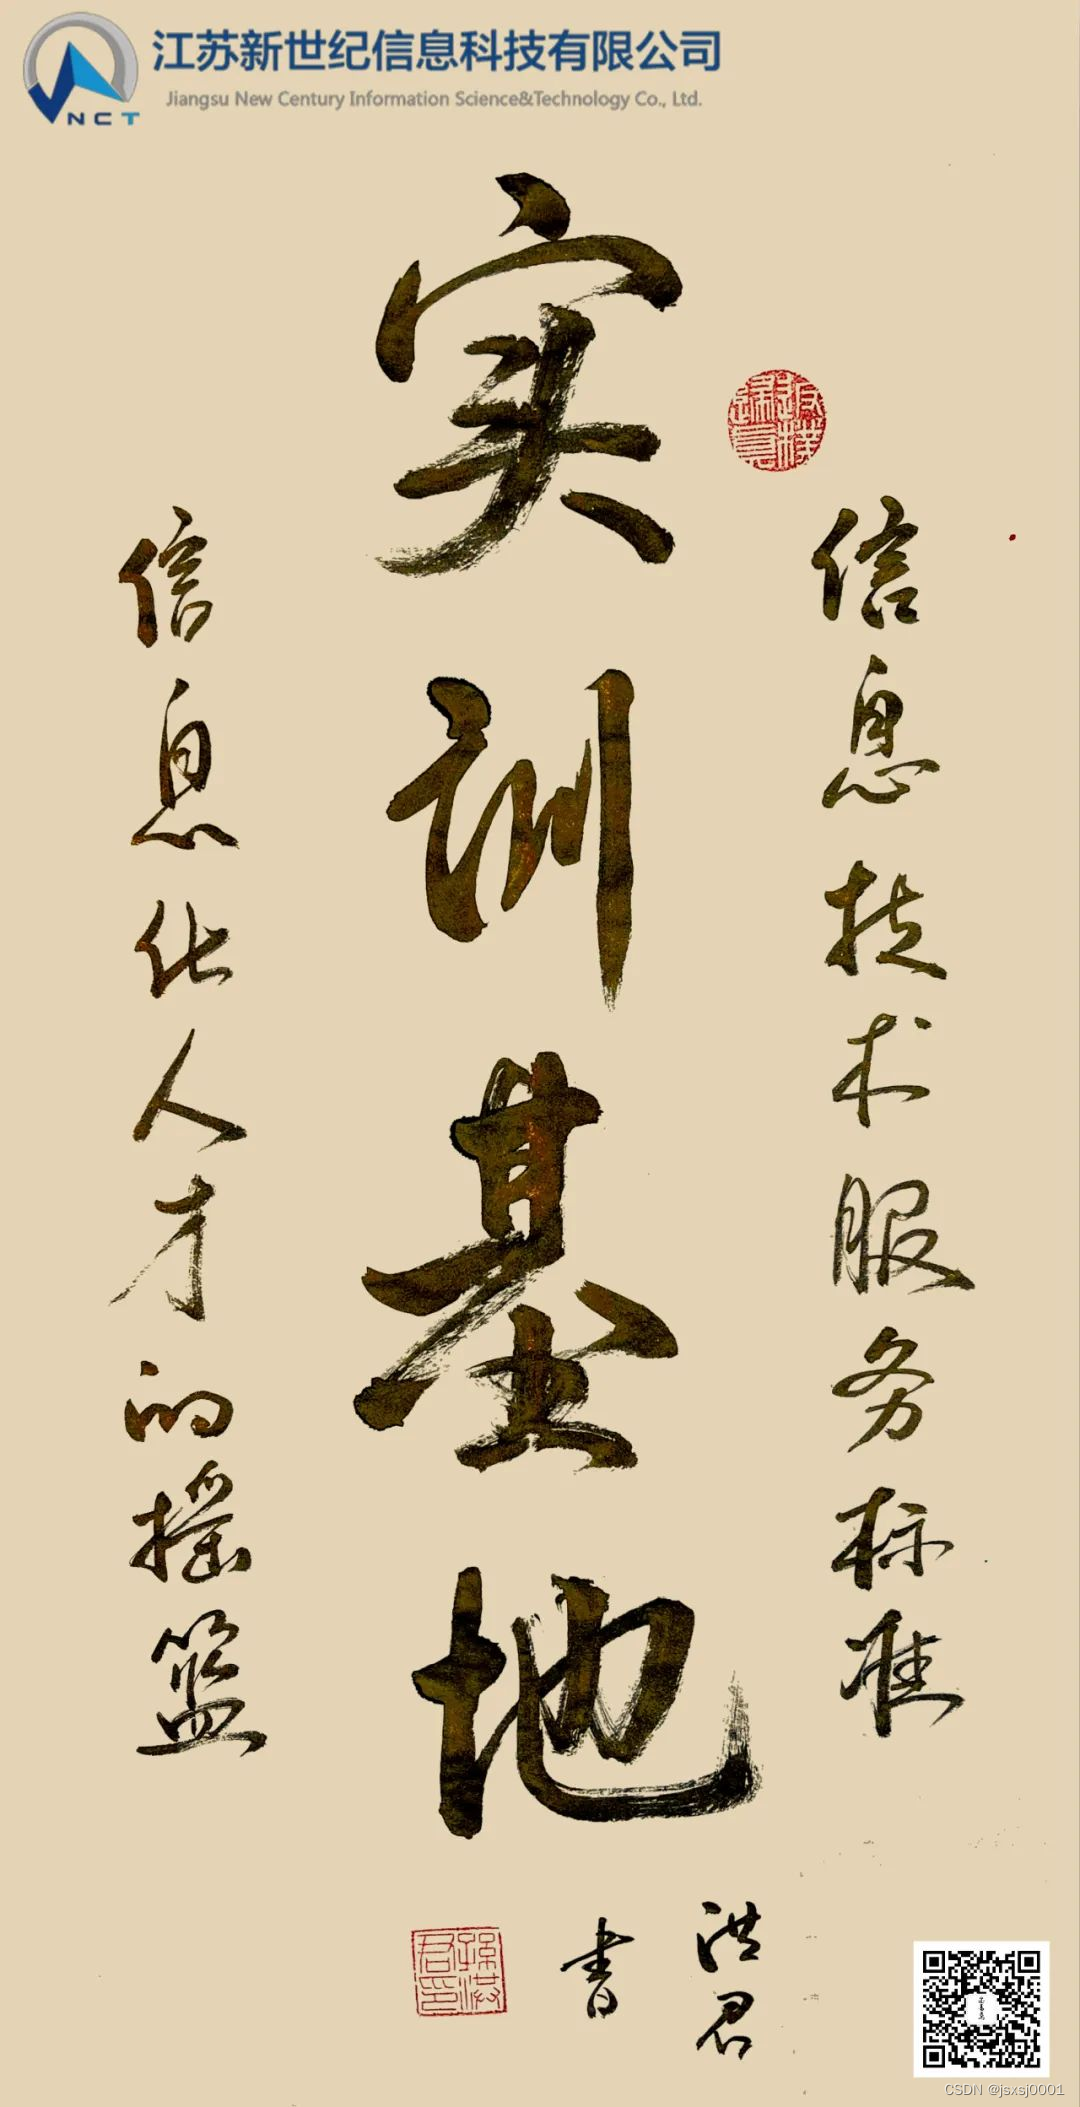 江苏新世纪信息科技有限公司
Jiangsu New Century Information Science&Technology Co., Ltd.
NCT
信息技术服务标准
实训基地
信息化人才的摇篮
洪君
書
孫洪君印
CSDN @jsxsj0001